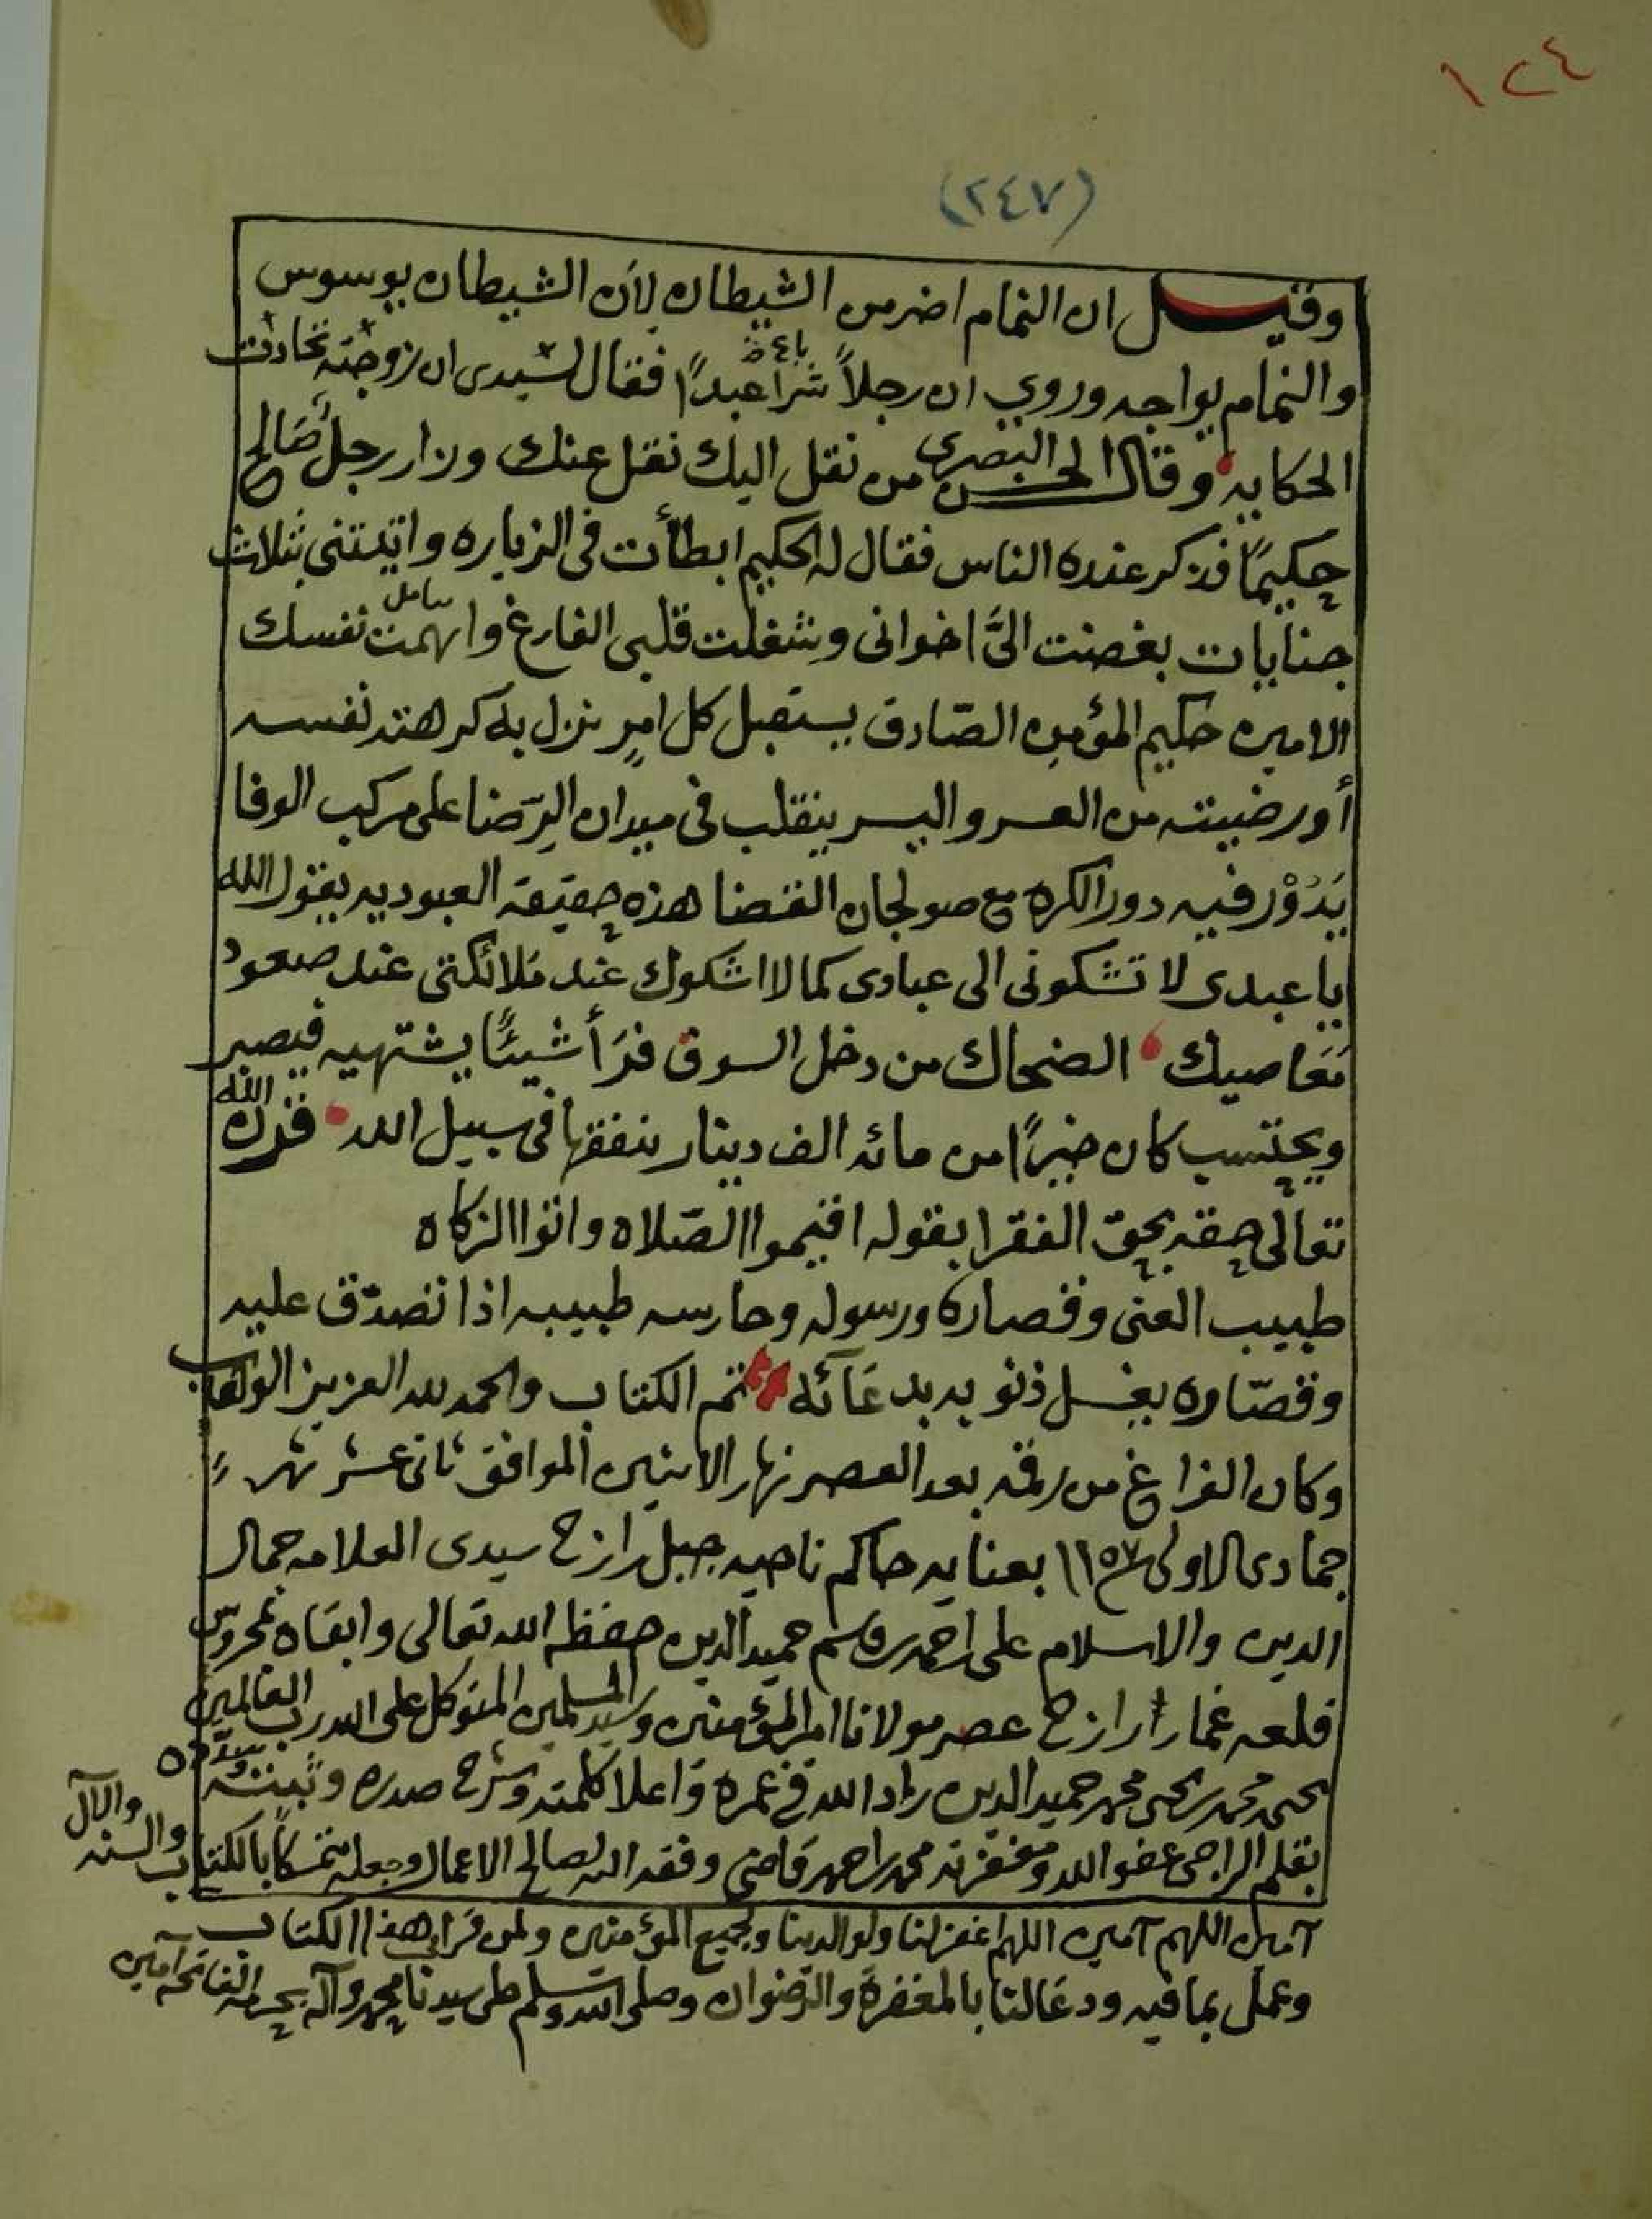 ١٢٤
(٢٤٧)
وقيل ان النمام اضر من الشيطان لأن الشيطان يوسوس
والنمام يواجه وروي ان رجلاً شرا عبداً فقال لسيدى ان زوجته تخادت
باع ظ
الحكايه وقال الحسن البصرى من نقل اليك نقل عنك وزار رجل صالح
حكيمًا فذكر عنده الناس فقال له الحكيم ابطأت فى الزياره واتيتنى بثلاث
جنايات بغضت الىَّ اخوانى وشغلت قلبى الفارغ واتهمت نفسك
الامين حكيم المؤمن الصّادق يستقبل كل امرٍ نزل به كرهته نفسه
أو رضيته من العسر واليسر يتقلب فى ميدان الرّضا على مركب الوفا
يَدُوْر فيه دور الكره مع صولجان القضا هذه حقيقة العبوديه يقول الله
يا عبدى لا تشكونى الى عبادى كما لا اشكوك عند ملائكتى عند صعود
مَعَاصيك الضحاك من دخل السوق فرَأ شيئًا يشتهيه فيصبر
ويحتسب كان خيرًا من مائه الف دينار ينفقها فى سبيل الله قرن الله
تعالى حقه بحق الفقرا بقوله اقيموا الصّلاه واتوا الزكاه
طبيب الغنى وقصاره ورسوله وحارسه طبيبه اذا تصدّق عليه
وقصّاره يغسل ذنوبه بدعَآئه تم الكتاب والحمد لله العزيز الوهاب
وكان الفراغ من رقمه بعد العصر نهار الاثنين الموافق ثانى عشر شهر
جمادى الاولى ١١٥٧ بعنايه حاكم ناحيه جبل رازح سيدى العلامه جمال
الدين والاسلام على احمد قاسم حميد الدين حفظه الله تعالى وابقاه بمحروس
قلعه غمار رازح عصر مولانا امير المؤمنين وسيد المسلمين المتوكل على الله رب العالمين
يحيى محمد يحيى محمد حميد الدين زاد الله فى عمره واعلا كلمته وشرح صدره وثبته
بقلم الراجى عفو الله ومغفرته محمد احمد قاضى وفقه الله لصالح الاعمال وجعله متمسكاً بالكتاب والسنه والآل
آمين اللهم آمين اللهم اغفر لنا ولوالدينا ولجميع المؤمنين ولمن قرا فى هذا الكتاب
وعمل بما فيه ودعَا لنا بالمغفرة والرضوان وصلى الله وسلم على سيدنا محمد وآله بحرمة الفاتحه آمين